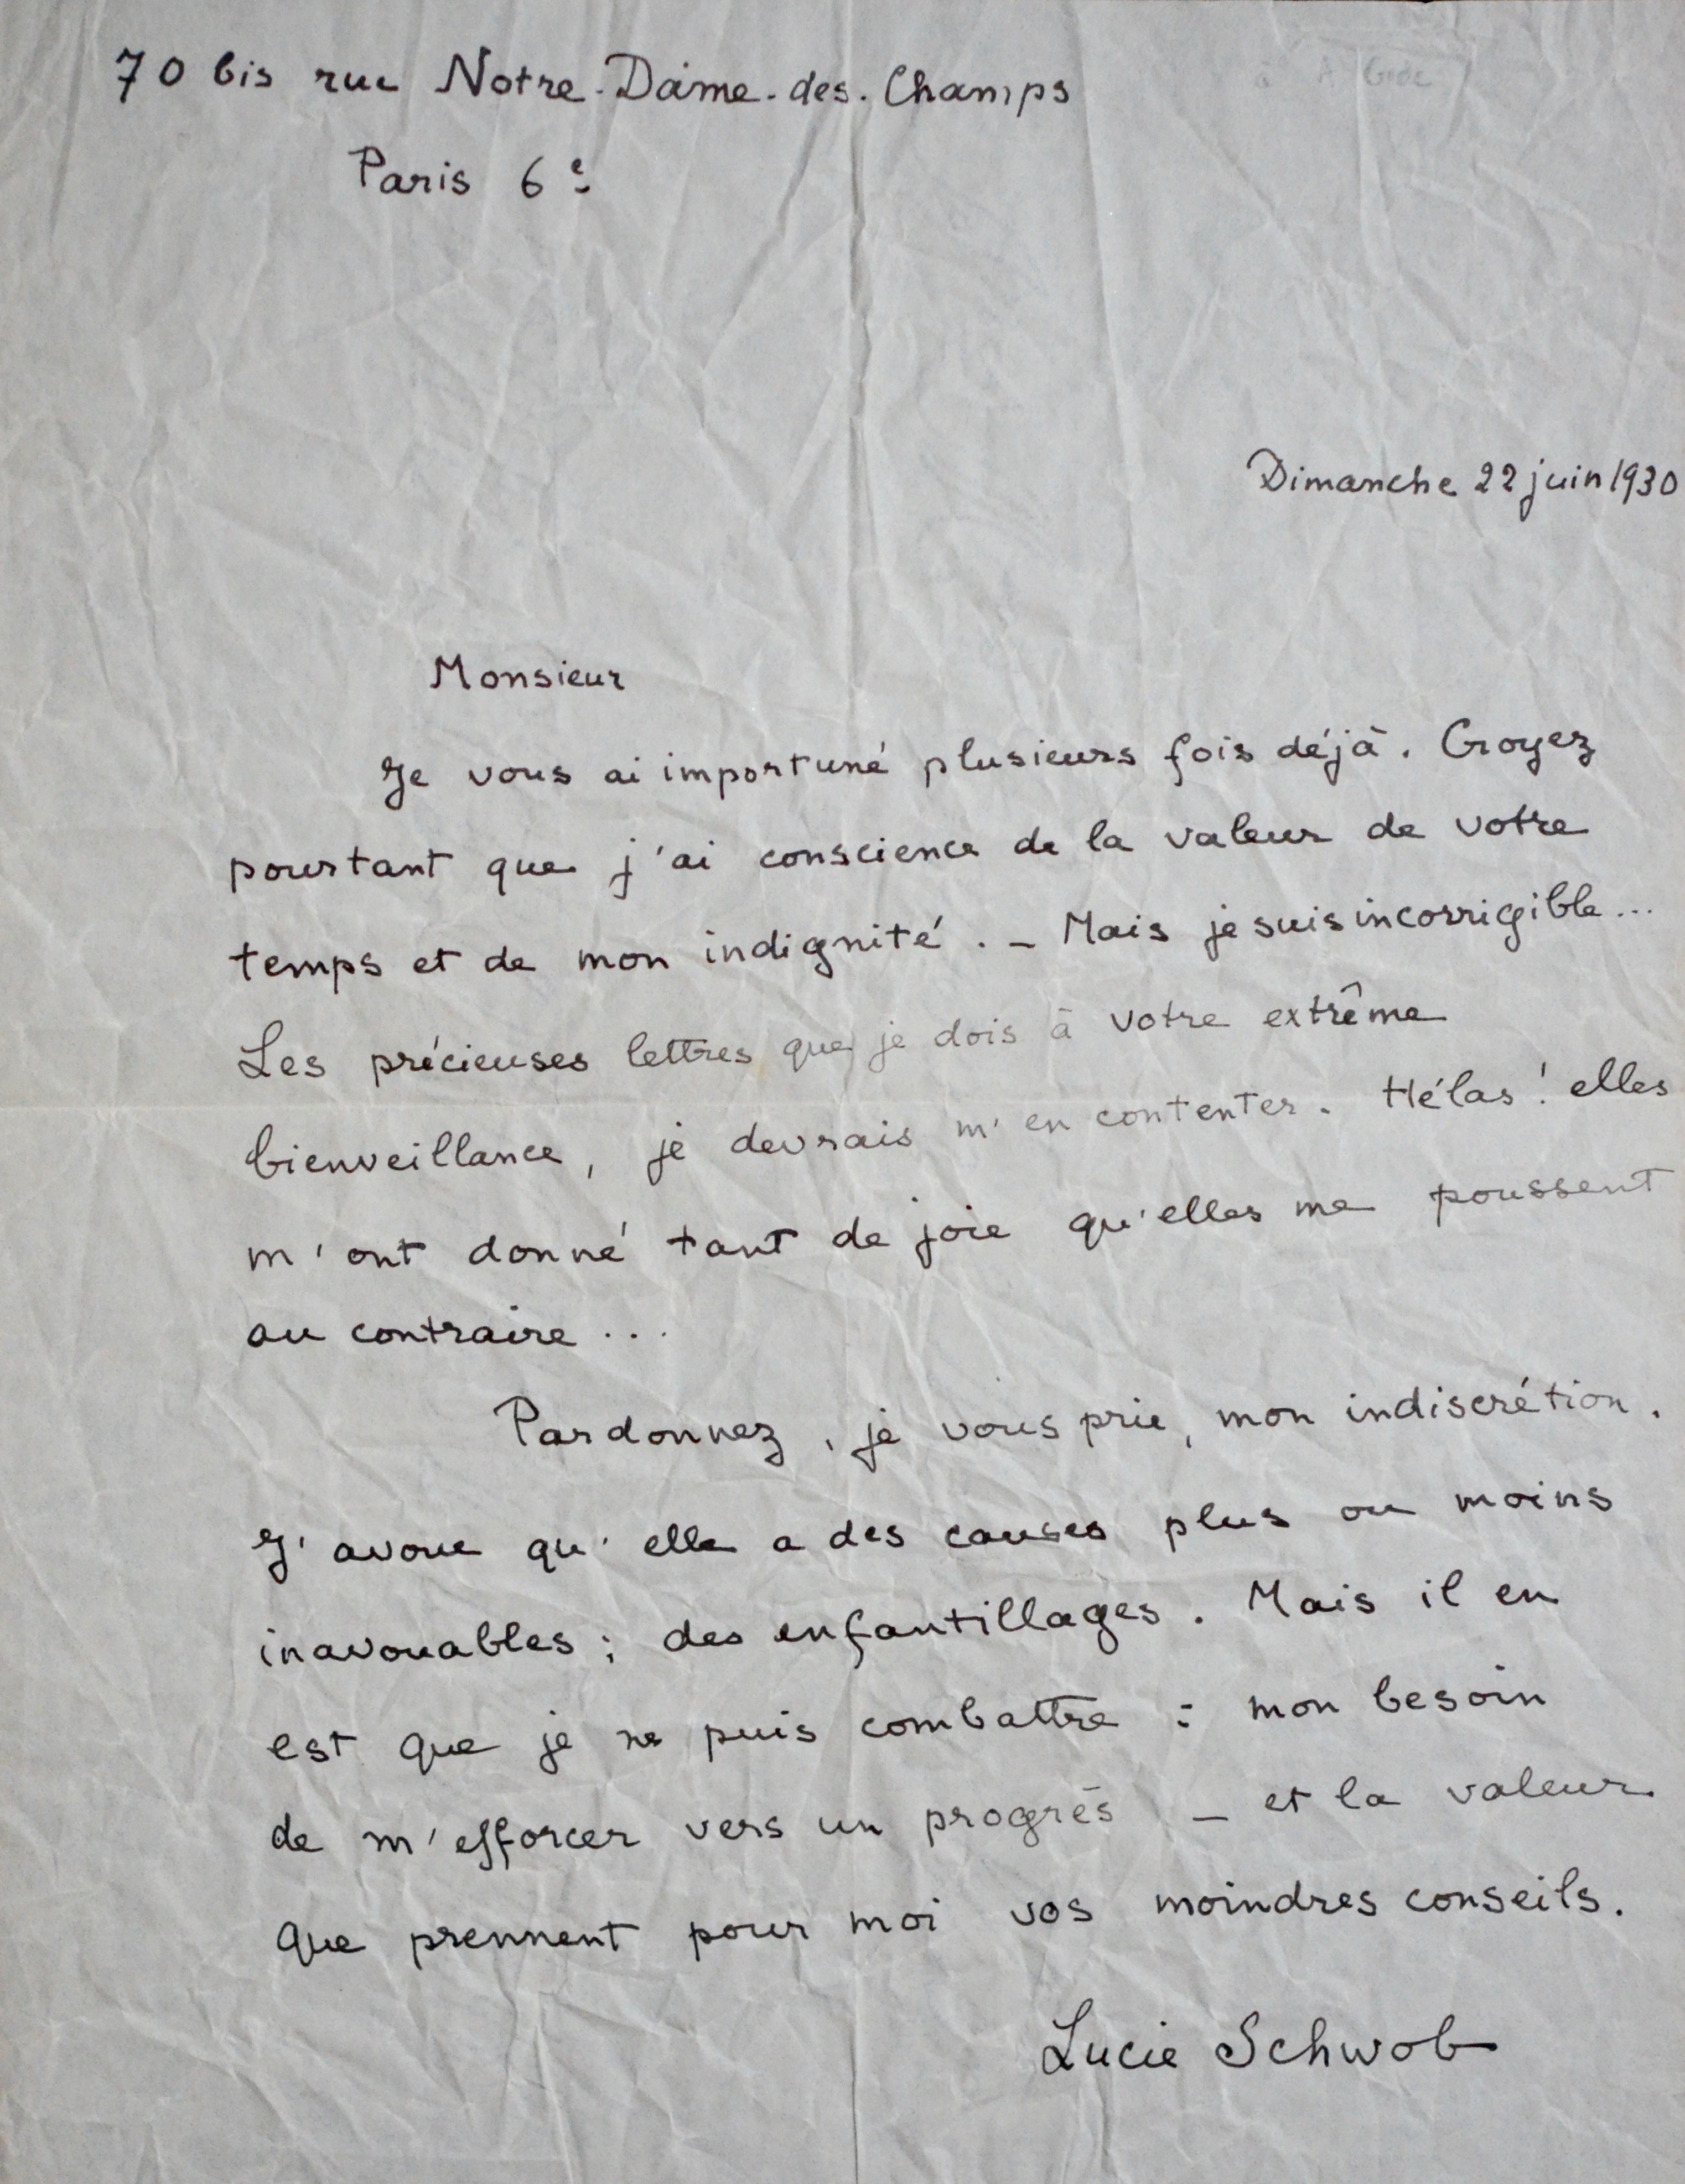 à A Gide
70 bis rue Notre-Dame-des-Champs
Paris 6e
Dimanche 22 juin 1930
Monsieur
Je vous ai importuné plusieurs fois déjà. Croyez
pourtant que j'ai conscience de la valeur de votre
temps et de mon indignité. – Mais je suis incorrigible...
Les précieuses lettres que je dois à votre extrême
bienveillance, je devrais m'en contenter. Hélas! elles
m'ont donné tant de joie qu'elles me poussent
au contraire...
Pardonnez, je vous prie, mon indiscrétion.
J'avoue qu'elle a des causes plus ou moins
inavouables; des enfantillages. Mais il en
est que je ne puis combattre : mon besoin
de m'efforcer vers un progrès – et la valeur
que prennent pour moi vos moindres conseils.
Lucie Schwob